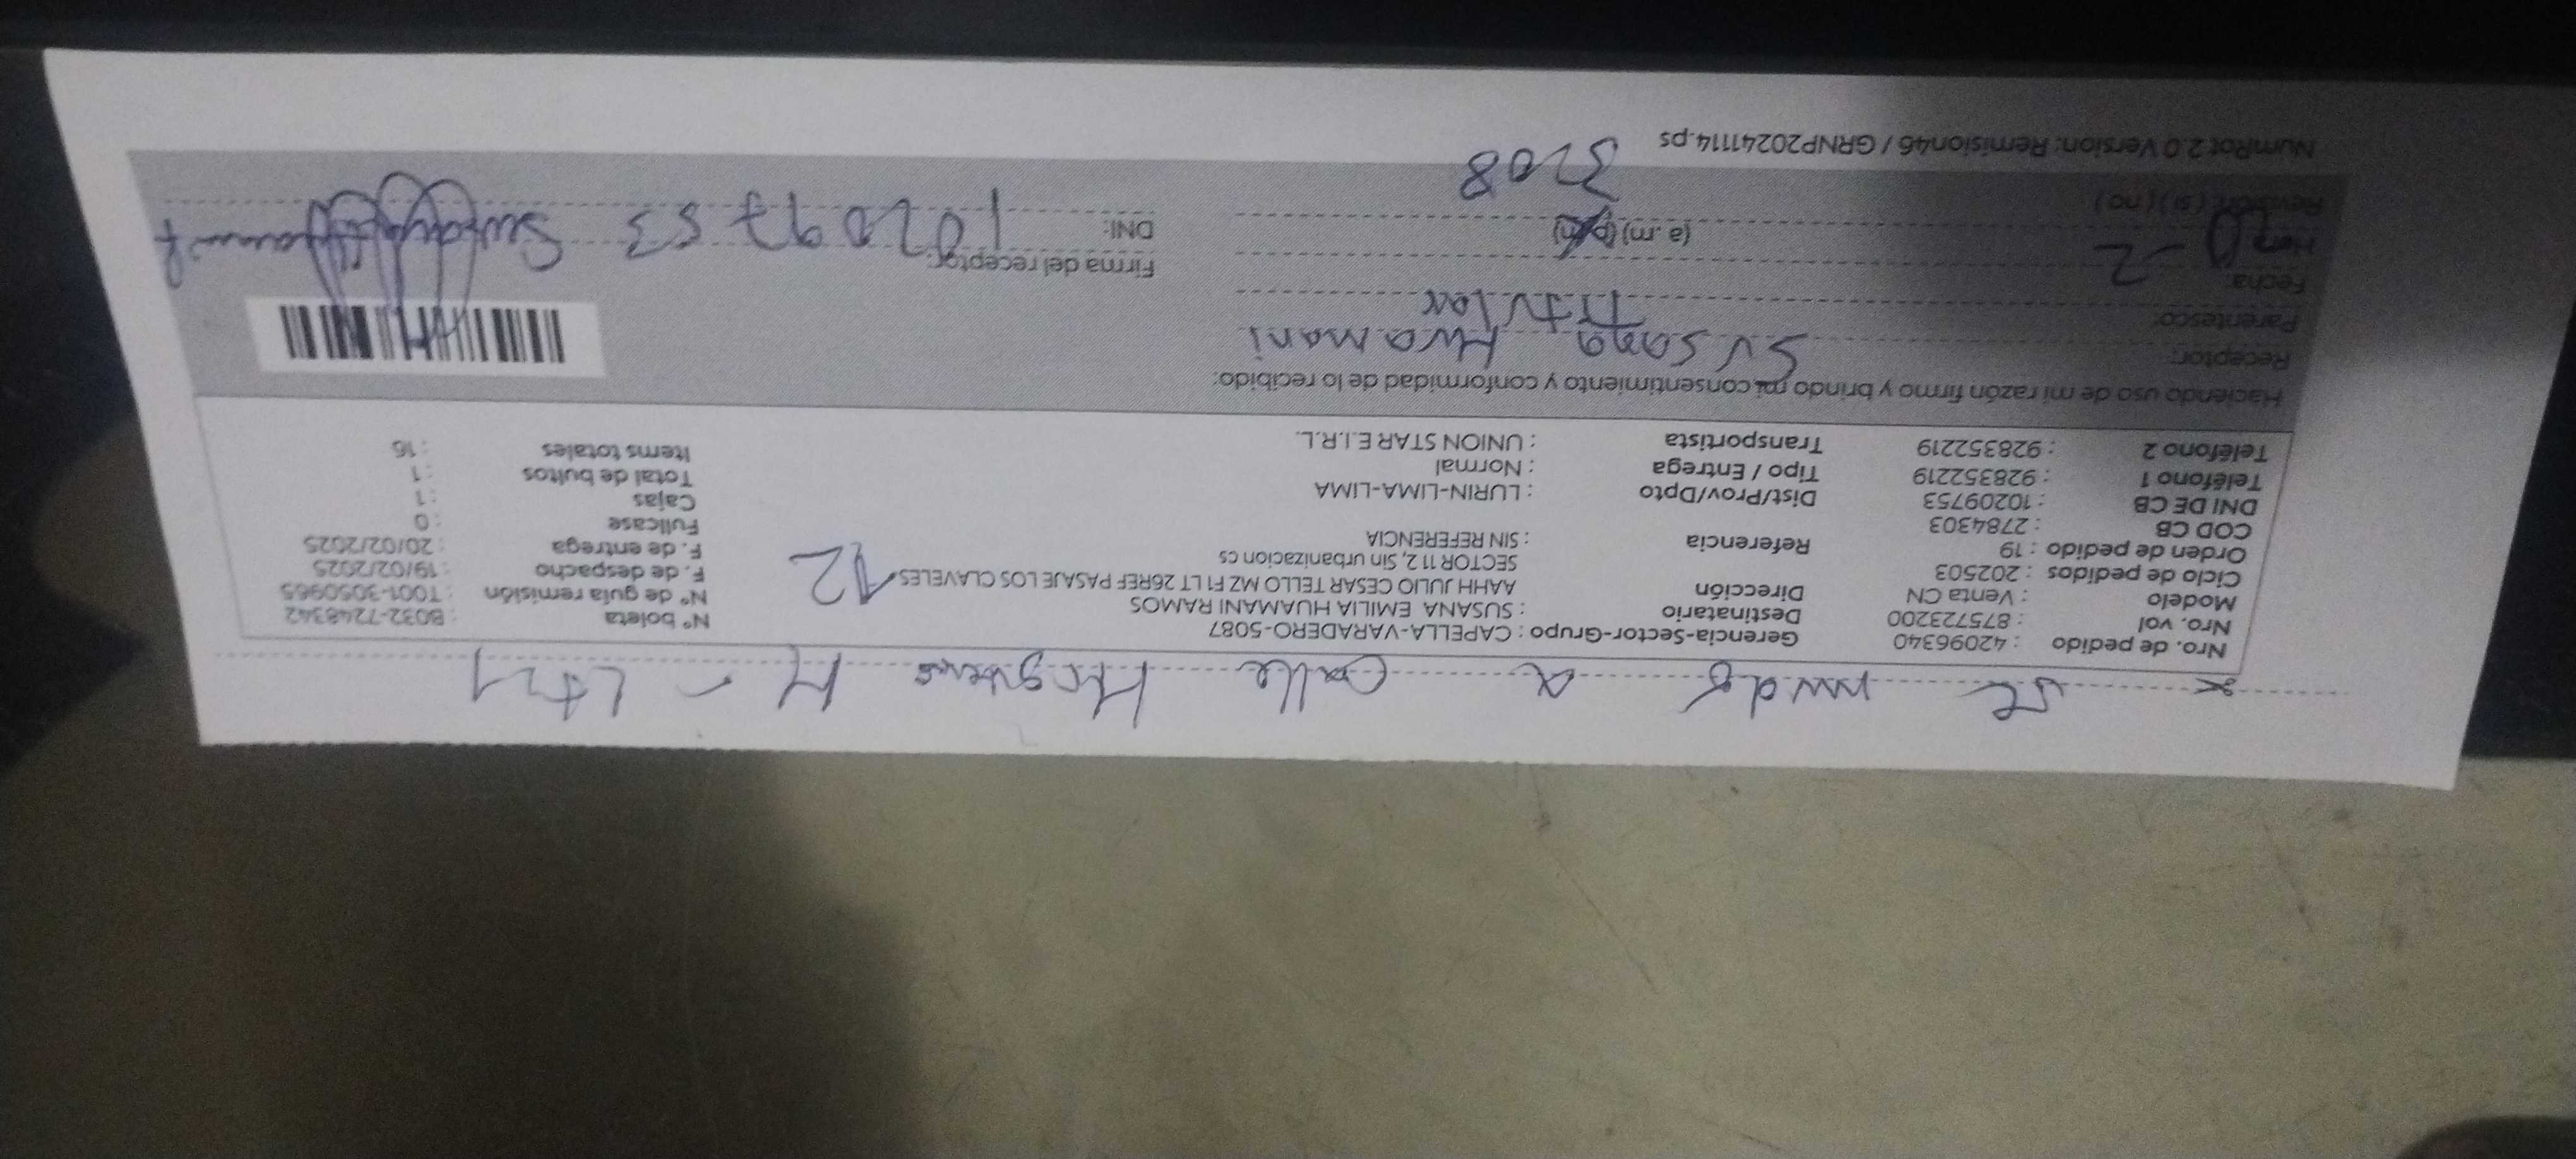 se mudó a calle Higuereta M - Lt 21
Nro. de pedido : 42096340
Nro. vol : 875723200
Modelo : Venta CN
Ciclo de pedidos : 202503
Orden de pedido : 19
COD CB : 2784303
DNI DE CB : 10209753
Teléfono 1 : 928352219
Teléfono 2 : 928352219
Gerencia-Sector-Grupo : CAPELLA-VARADERO-5087
Destinatario : SUSANA EMILIA HUAMANI RAMOS
Dirección AAHH JULIO CESAR TELLO MZ F1 LT 26REF PASAJE LOS CLAVELES
SECTOR 11 2, Sin urbanizacion cs
12
Referencia : SIN REFERENCIA
Dist/Prov/Dpto : LURIN-LIMA-LIMA
Tipo / Entrega : Normal
Transportista : UNION STAR E.I.R.L.
N° boleta : B032-7248342
N° de guía remisión : T001-3050965
F. de despacho : 19/02/2025
F. de entrega : 20/02/2025
Fullcase : 0
Cajas : 1
Total de bultos : 1
Items totales : 16
Haciendo uso de mi razón firmo y brindo mi consentimiento y conformidad de lo recibido:
Receptor: Susana Huamani
Parentesco: Titular
Fecha: 20-2
Hora: (a.m) (p.m)
3:08
Revisión: (si) (no)
Firma del receptor:
DNI: 10209753
NumRot 2.0 Version: Remision46 / GRNP20241114.ps